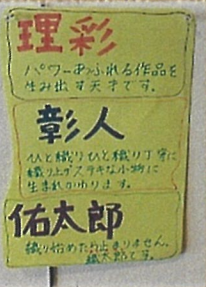 理彩
パワーあふれる作品を
生み出す天才です。
彰人
ひと織りひと織り丁寧に
織り上げステキな小物に
生まれかわります。
佑太郎
織り始めたら止まりません。
織太郎です。